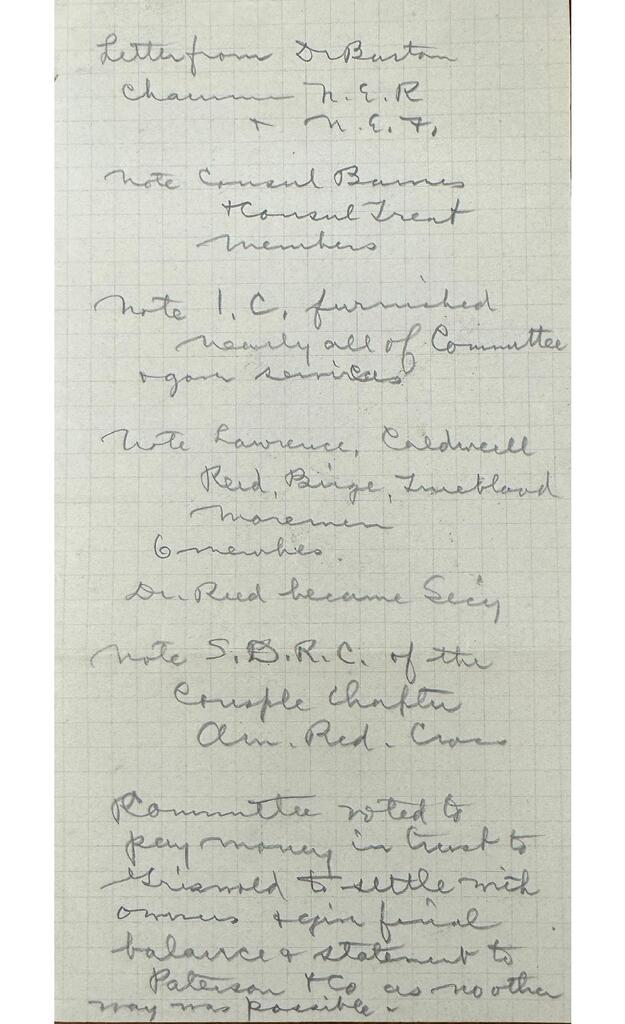 Letter from Dr Barton
Chairman N.E.R
+ N.E.F.
Note Consul Barnes
+ Consul Treat
members
Note I.C. furnished
nearly all of Committee
+ gave services
Note Lawrence, Caldwell
Reed, Birge, Trueblood
6 members.
Dr. Reed became Secy
Note S.B.R.C. of the
Consple Chapter
Am. Red. Cross
Committee voted to
pay money in trust to
Griswold to settle with
owners + give final
balance + statement to
Paterson + Co as no other
way was possible -